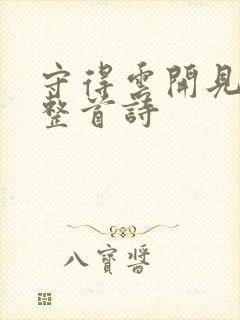 守得雲開見
整首詩
八寶醬